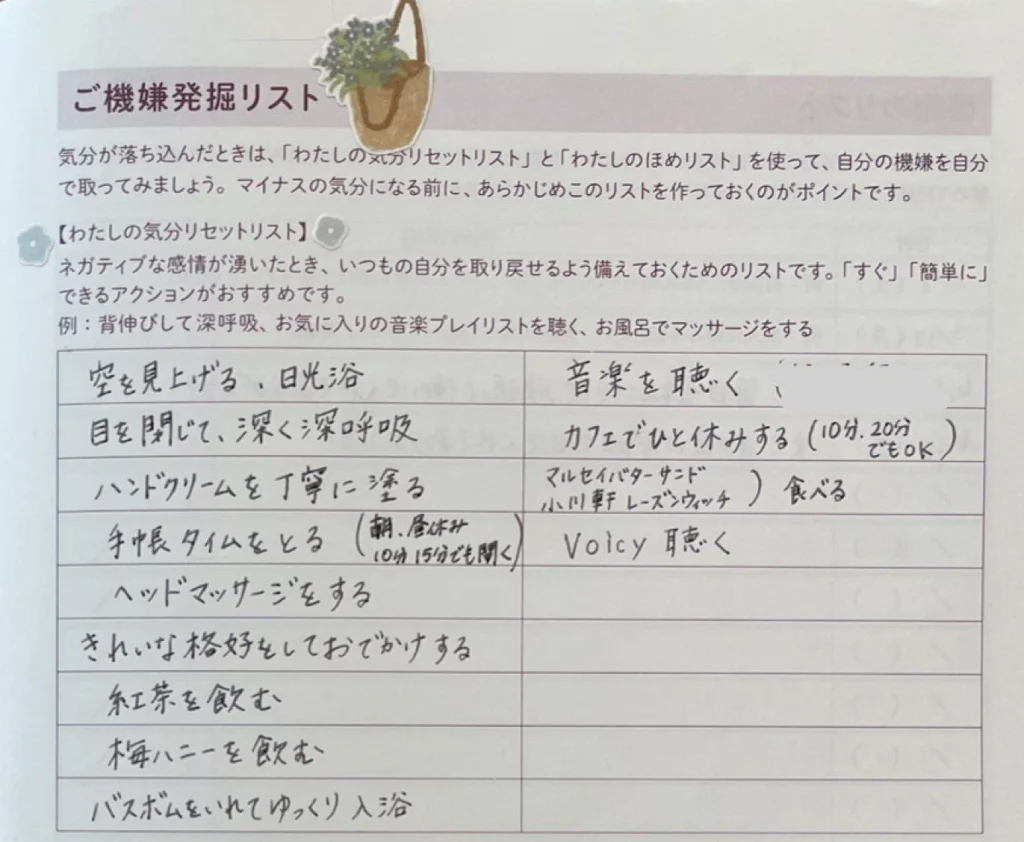 ご機嫌発掘リスト
気分が落ち込んだときは、「わたしの気分リセットリスト」と「わたしのほめリスト」を使って、自分の機嫌を自分
で取ってみましょう。マイナスの気分になる前に、あらかじめこのリストを作っておくのがポイントです。
【わたしの気分リセットリスト】
ネガティブな感情が湧いたとき、いつもの自分を取り戻せるよう備えておくためのリストです。「すぐ」「簡単に」
できるアクションがおすすめです。
例：背伸びして深呼吸、お気に入りの音楽プレイリストを聴く、お風呂でマッサージをする
空を見上げる、日光浴
目を閉じて、深く深呼吸
ハンドクリームを丁寧に塗る
手帳タイムをとる（朝、昼休み
10分 15分でも開く）
ヘッドマッサージをする
きれいな格好をしておでかけする
紅茶を飲む
梅ハニーを飲む
バスボムをいれてゆっくり入浴
音楽を聴く、
カフェでひと休みする（10分、20分
でもOK）
マルセイバターサンド
小川軒 レーズンウィッチ ）食べる
Voicy 聴く